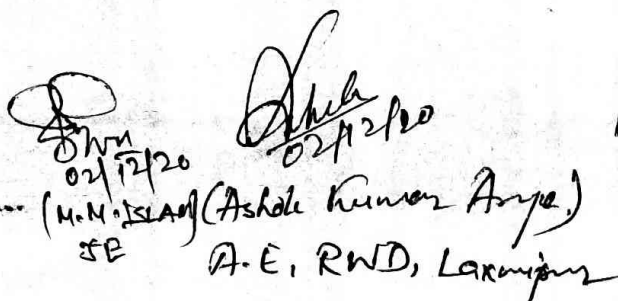 02/12/20
02/12/20
(M.M. ISLAM) (Ashok Kumar Arya)
JE
A.E, RWD, Laxmipur